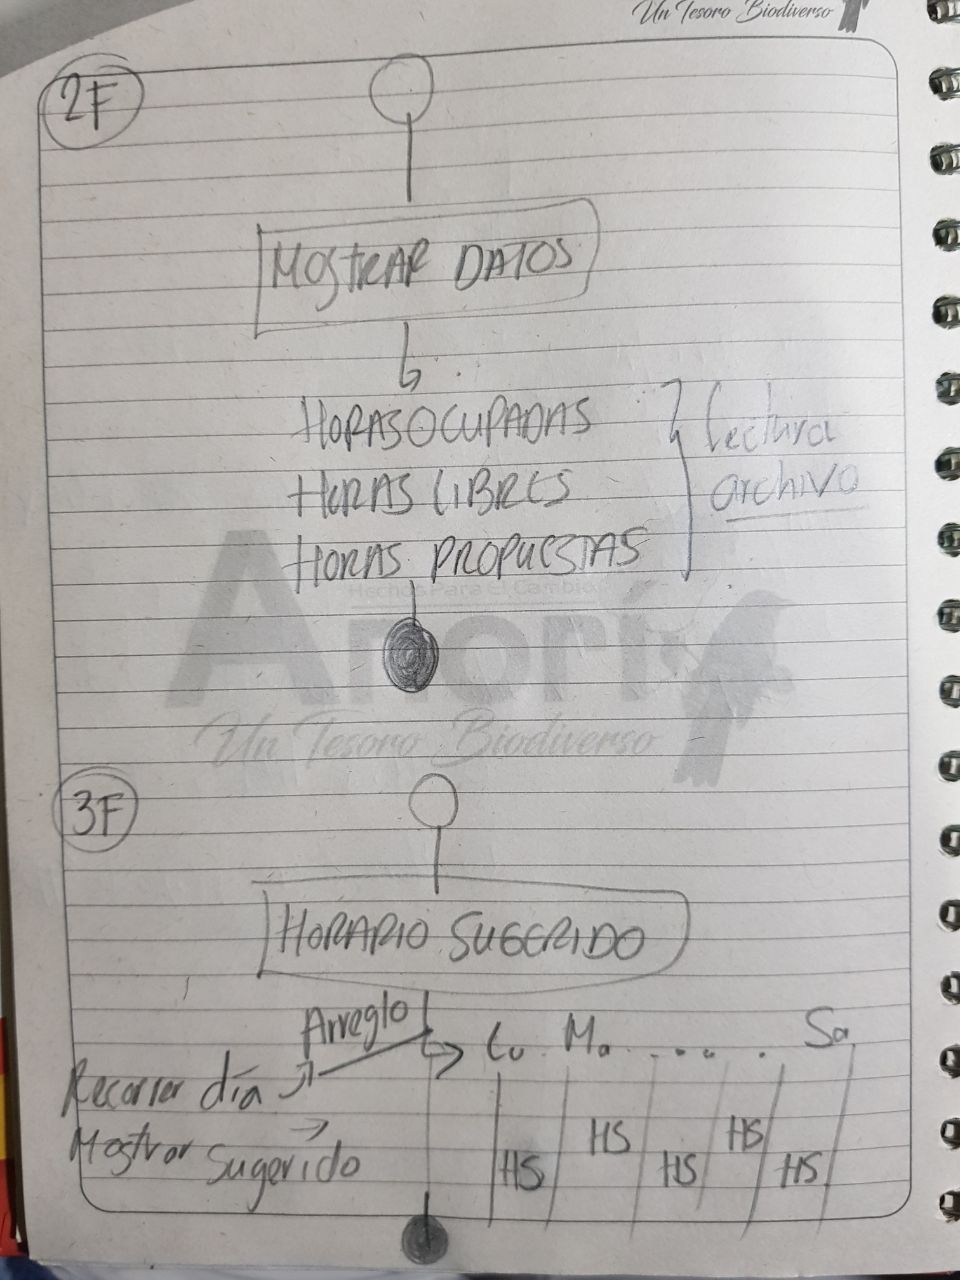 Un Tesoro Biodiverso
2F
MOSTRAR DATOS
HORAS OCUPADAS
HORAS LIBRES
HORAS PROPUESTAS
Lectura
archivo
Hechos Para El Cambio
Anorí
Un Tesoro Biodiverso
3F
HORARIO SUGERIDO
Arreglo
Recorrer día
Mostrar sugerido
Lu. Ma. . . . . Sa.
HS HS HS HS HS